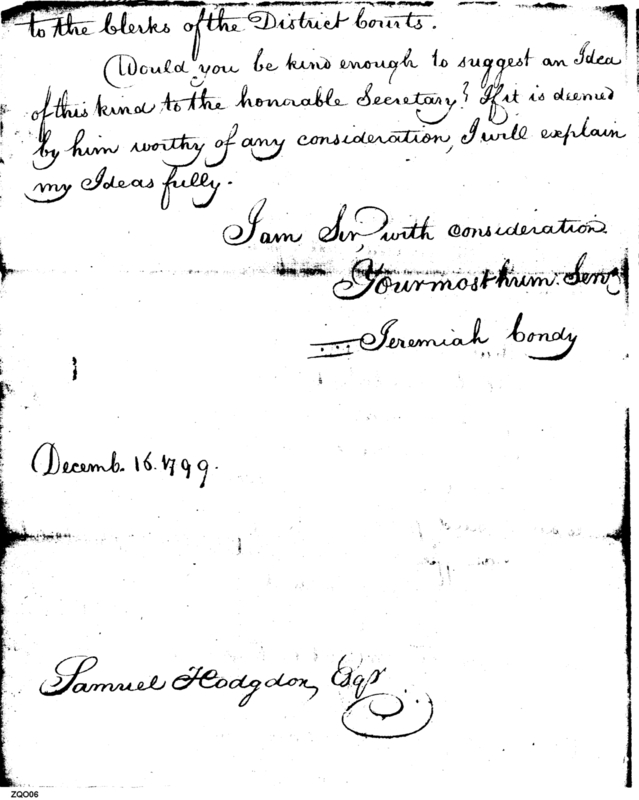 to the Clerks of the District Courts.
Would you be kind enough to suggest an Idea
of this kind to the honorable Secretary? If it is deemed
by him worthy of any consideration, I will explain
my Ideas fully.
I am Sir, with consideration.
Your most hum. Servt
Jeremiah Condy
Decemb. 16. 1799.
Samuel Hodgdon, Esqr
ZQO06